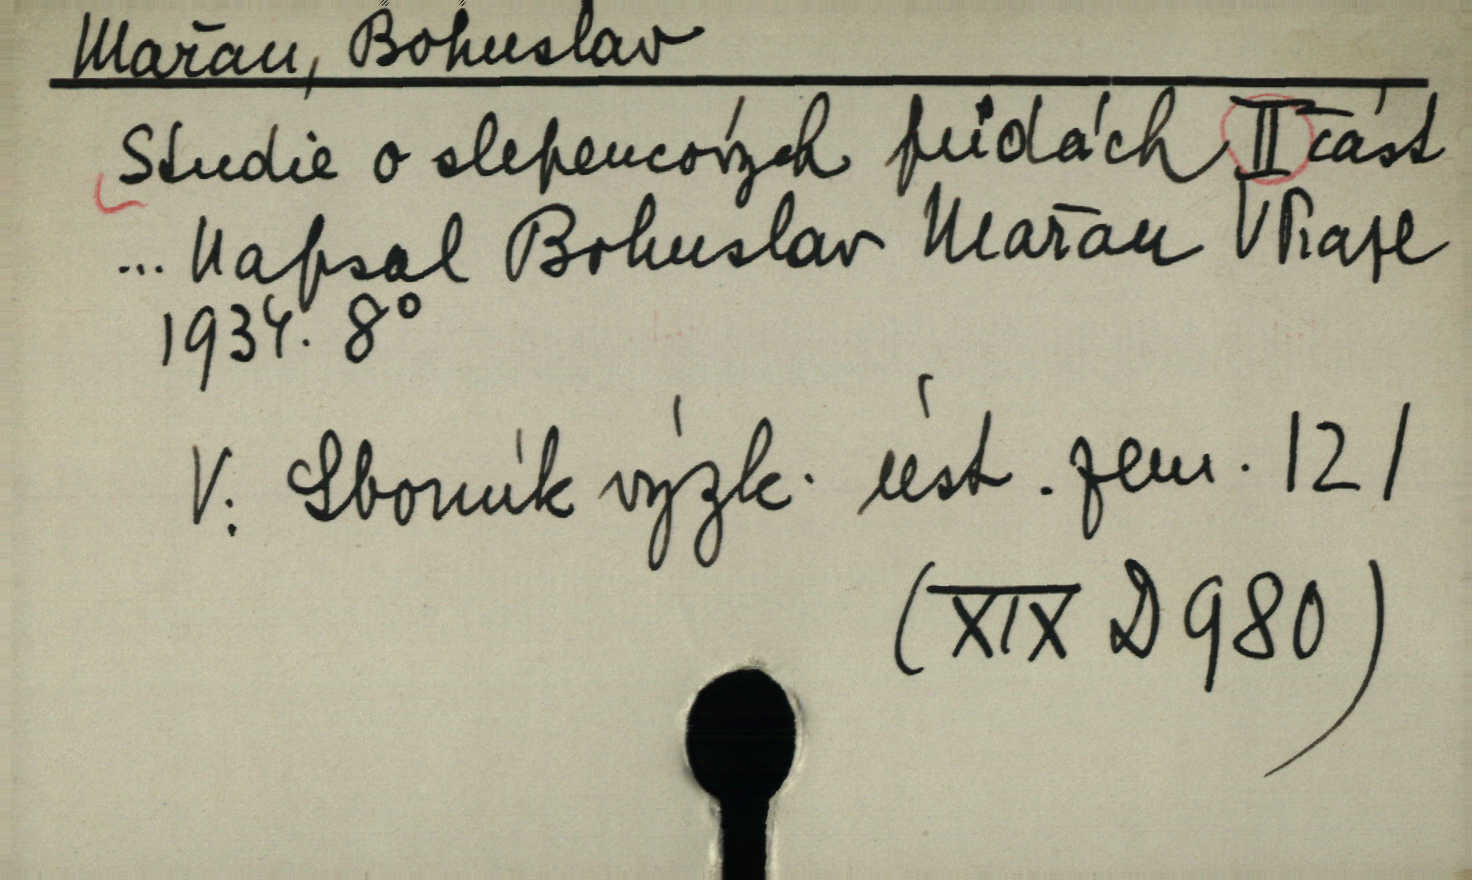 Mařan, Bohuslav
Studie o slepencových půdách II část
... Napsal Bohuslav Mařan V Praze
1934. 8°
V: Sborník výzk. úst. zem. 121
(XIX D 980)